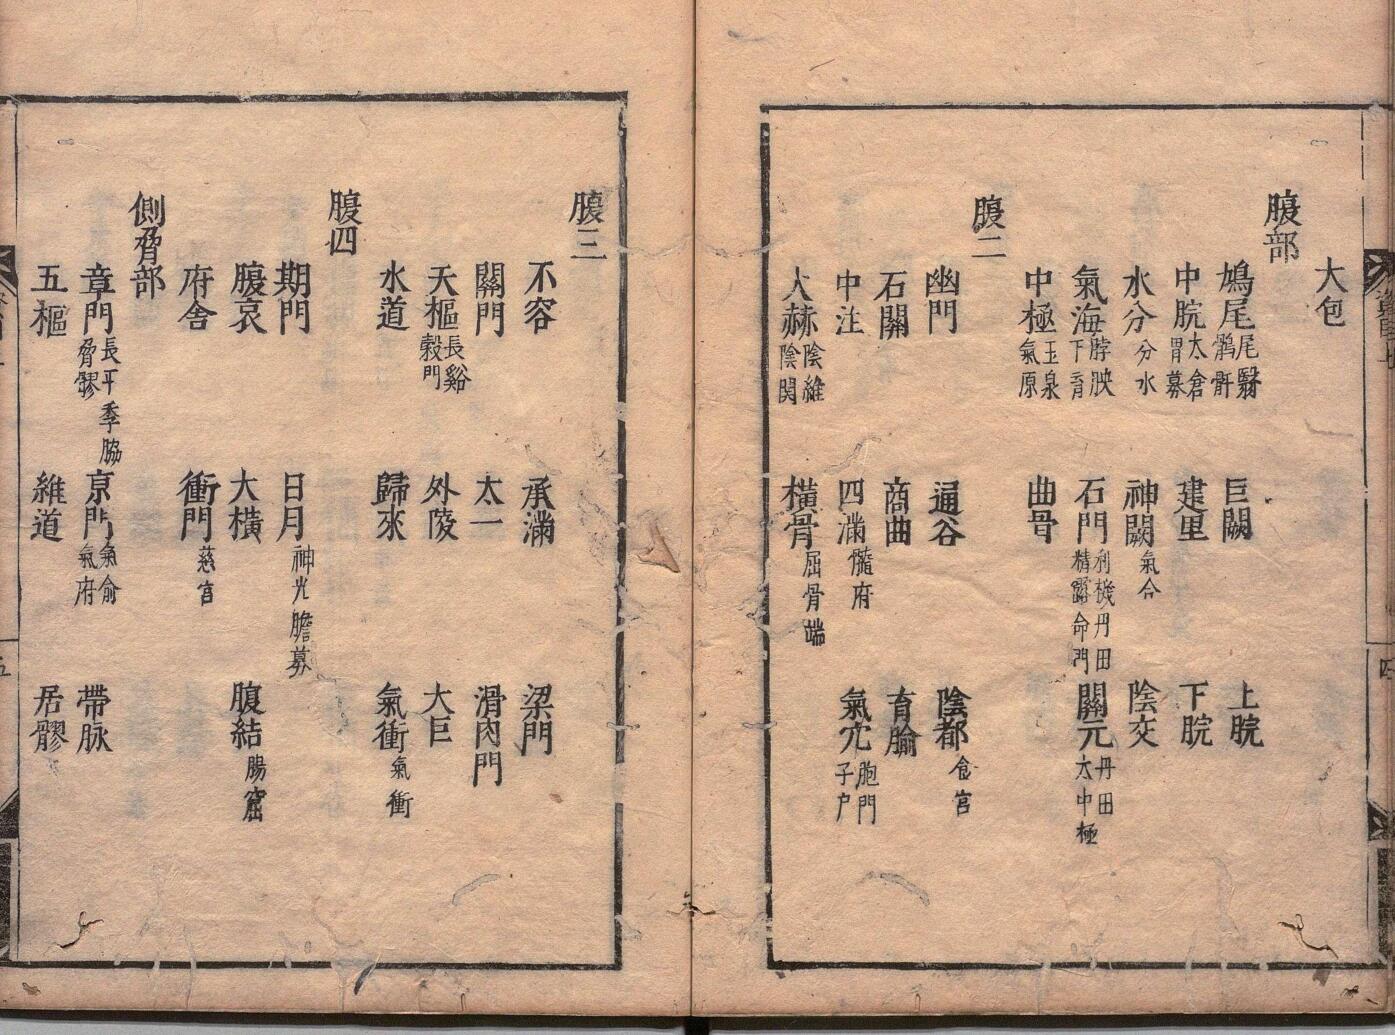 大包
腹部
鳩尾 尾翳 𩩲骬 巨闕 上脘
中脘 太倉 胃募 建里 下脘
水分 分水 神闕 氣合 陰交
氣海 脖胦 下肓 石門 利機丹田 精露命門 關元 丹田 太中極
中極 玉泉 氣原 曲骨
腹二
幽門 通谷 陰都 食宮
石關 商曲 肓腧
中注 四滿 髓府 氣穴 胞門 子户
大赫 陰維 陰関 橫骨 屈骨端
四
腹三
不容 承滿 梁門
關門 太一 滑肉門
天樞 長谿 穀門 外陵 大巨
水道 歸來 氣衝 氣衝
腹四
期門 日月 神光膽募
腹哀 大橫 腹結 腸窟
府舍 衝門 慈宮
側脅部
章門 長平季脇 脅髎 京門 氣俞 氣府 帶脉
五樞 維道 居髎
五